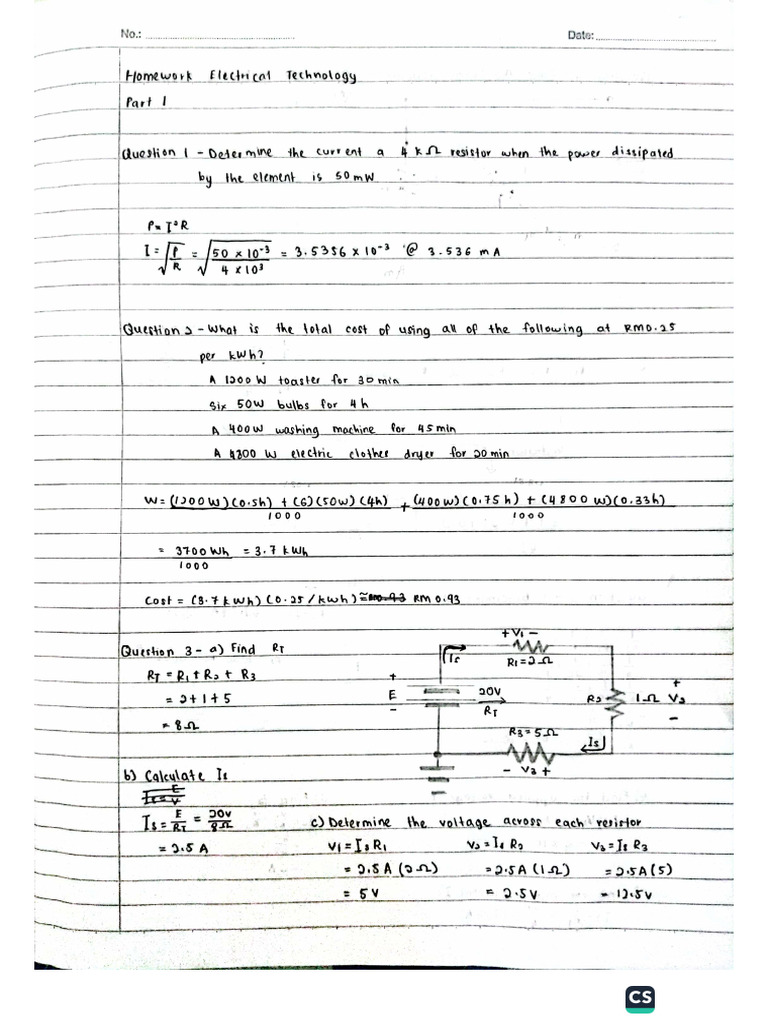 No.:
Date:
Homework Electrical Technology
Part 1
Question 1 - Determine the current a 4 kΩ resistor when the power dissipated
by the element is 50 mW
P = I²R
I = √(P/R) = √(50 × 10⁻³ / 4 × 10³) = 3.5356 × 10⁻³ @ 3.536 mA
Question 2 - What is the total cost of using all of the following at RM0.25
per kWh?
A 1200 W toaster for 30 min
Six 50W bulbs for 4 h
A 400W washing machine for 45 min
A 4800 W electric clothes dryer for 20 min
W = (1200W)(0.5h) + (6)(50W)(4h) / 1000 + (400W)(0.75h) + (4800 W)(0.33h) / 1000
= 3700 Wh / 1000 = 3.7 kWh
Cost = (3.7 kWh)(0.25/kWh) ≅ RM 0.93
Question 3 - a) Find RT
RT = R1 + R2 + R3
= 2 + 1 + 5
= 8Ω
+ V1 -
Is
R1 = 2Ω
+
E
-
20V
RT
R2
1Ω
+
V2
-
R3 = 5Ω
Is
- V3 +
b) Calculate Is
Is = E/RT = 20V/8Ω
= 2.5 A
c) Determine the voltage across each resistor
V1 = Is R1
= 2.5 A (2Ω)
= 5 V
V2 = Is R2
= 2.5A (1Ω)
= 2.5V
V3 = Is R3
= 2.5A (5)
= 12.5V
CS